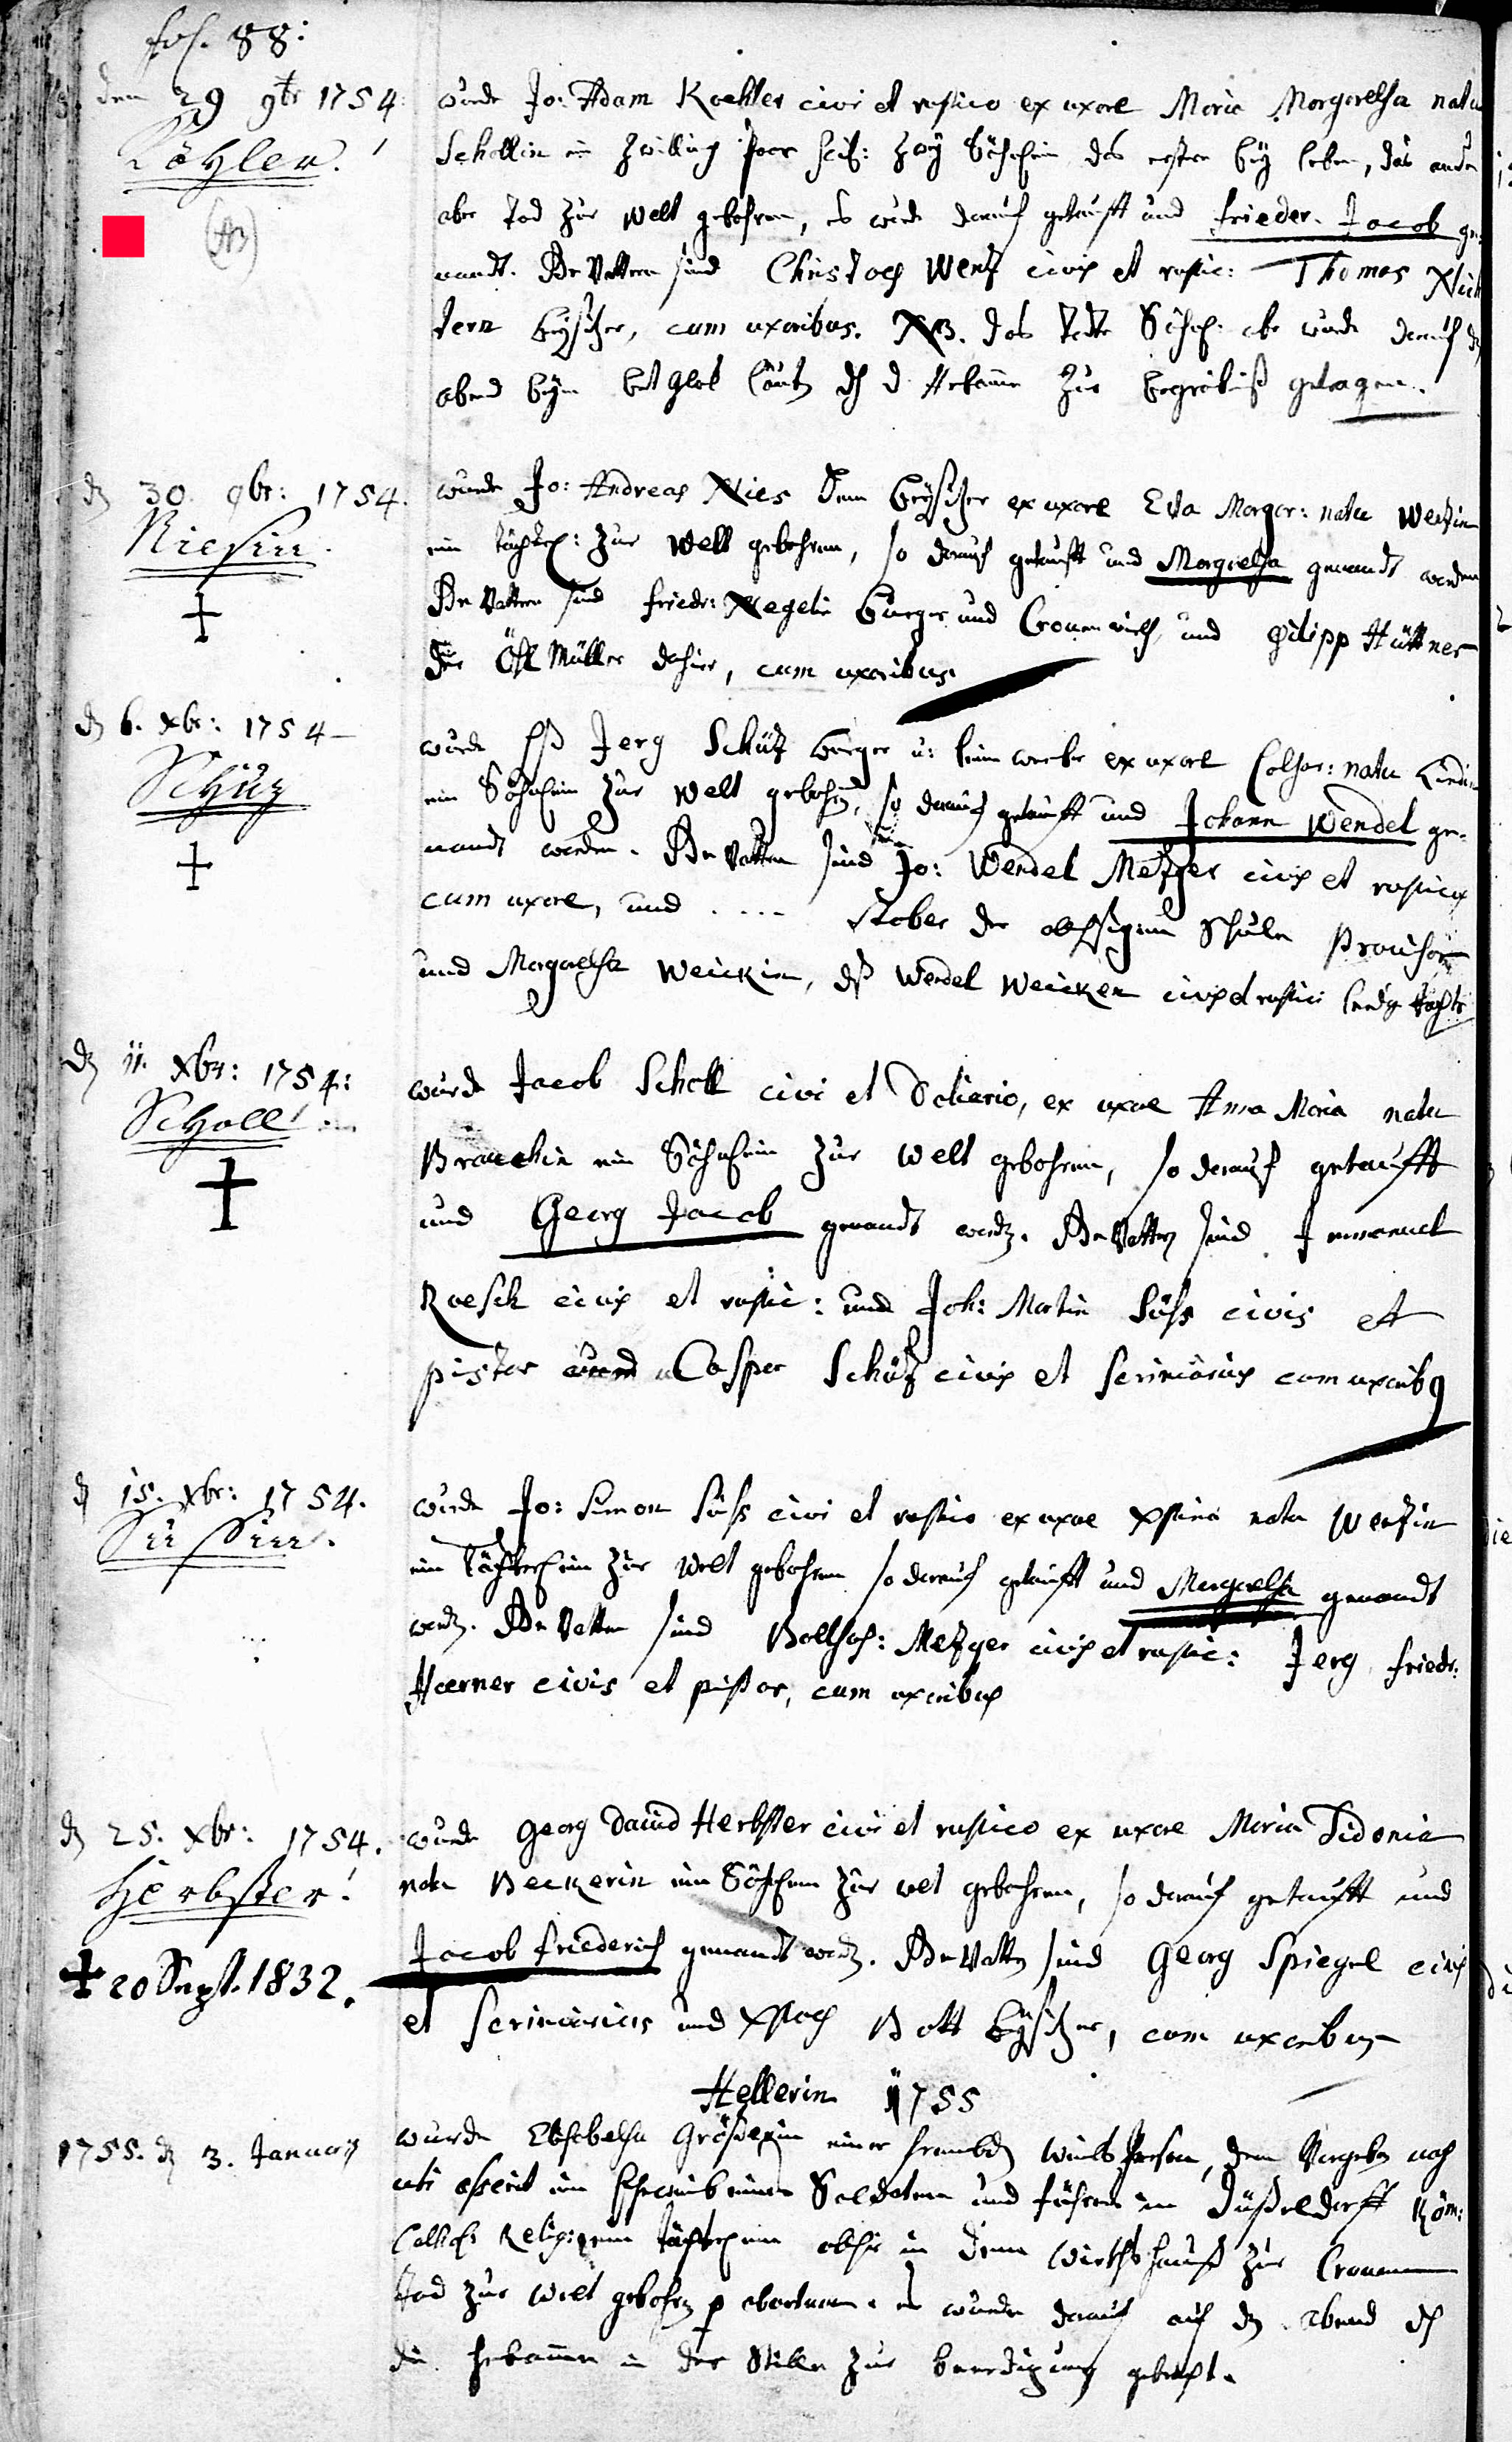 fol. 88:
den 29 9br 1754
Köhler!
wurde Jo: Adam Koehler civi et rustico ex uxore Maria Margaretha nata
Schollin ein Zwilling paar scil: zwey Söhnlein das erstere bey leben, das andere
aber Tod zur Welt gebohren, es wurde darauf getaufft und Frieder. Jacob ge-
nandt. Gevattern sind Christoph Wentz civis et rustic: Thomas
beysitzer, cum uxoribus. NB. das Todte Söhnl. aber wurde darauf
abend beym betglock läuten d. Hebamme zur begräbniß getragen.
d 30. 9br: 1754.
Niesin.
wurde Jo: Andreas Nies dem beysitzer ex uxore Eva Margar: nata Wentzin
ein Töchterl: zur Welt gebohren, so darauf getaufft und Margretha genandt worden
Gevattern sind Friedr: Negelin burger und Cronenwirth, und Philipp Hüttner
der Öhl Müller dahier, cum uxoribus.
d 6. Xbr: 1754
Schüz
wurde Jerg Schütz burger u: leinweber ex uxore Cathar: nata
ein Söhnlein zur Welt gebohrn, so darauf getaufft und Johann Wendel ge-
nandt worden. Gevattern sind Jo: Wendel Metzger civis et rusticus
cum uxore, und .... Stober der Schule Provisor
und Margaretha Weickin, deß Wendel Weicken civis et rustici ledige tochter
d 11. Xbr: 1754:
Scholl!
wurde Jacob Scholl civi et Doliario, ex uxore Anna Maria nata
Brauchin ein Söhnlein zur Welt gebohren, so darauf getaufft
und Georg Jacob genandt word. Gevattern sind Immanuel
Roesch civis et rustic: und Joh: Martin Süss civis et
pistor und Caspar Schütz civis et scriniarius cum uxoribus
d 15. Xbr: 1754.
Süssin.
wurde Jo: Simon Süss civi et rustico ex uxore Xstina nata Wentzin
ein Töchterlein zur Welt gebohren so darauf getaufft und Margaretha genandt
word. Gevattern sind Balthas: Metzger civis et rustic: Jerg Friedr:
Hoerner civis et pistor, cum uxoribus
d 25. Xbr: 1754.
Herbster!
✝ 20 Sept. 1832.
wurde Georg David Herbster civi et rustico ex uxore Maria Sidonia
nata Beckerin ein Söhnlein zur welt gebohren, so darauf getaufft und
Jacob Friederich genandt word. Gevattern sind Georg Spiegel civis
et scriniarius und Xstoph Bott beysitzer, cum uxoribus
Hellerin 1755
1755. d 3. January
wurde einer frembden Weibs Person, dem Vorgeben nach
uti asserit ein Eheweib eines Soldaten und in Düsseldorff Röm:
Cathol: Relig: ein Töchterlein allhie in dem Wirthshauß zur Cronen
tod zur Welt gebohrn p abortum. es wurde darauf auf den abend
die Hebamme in der Stille zur beerdigung gebracht.